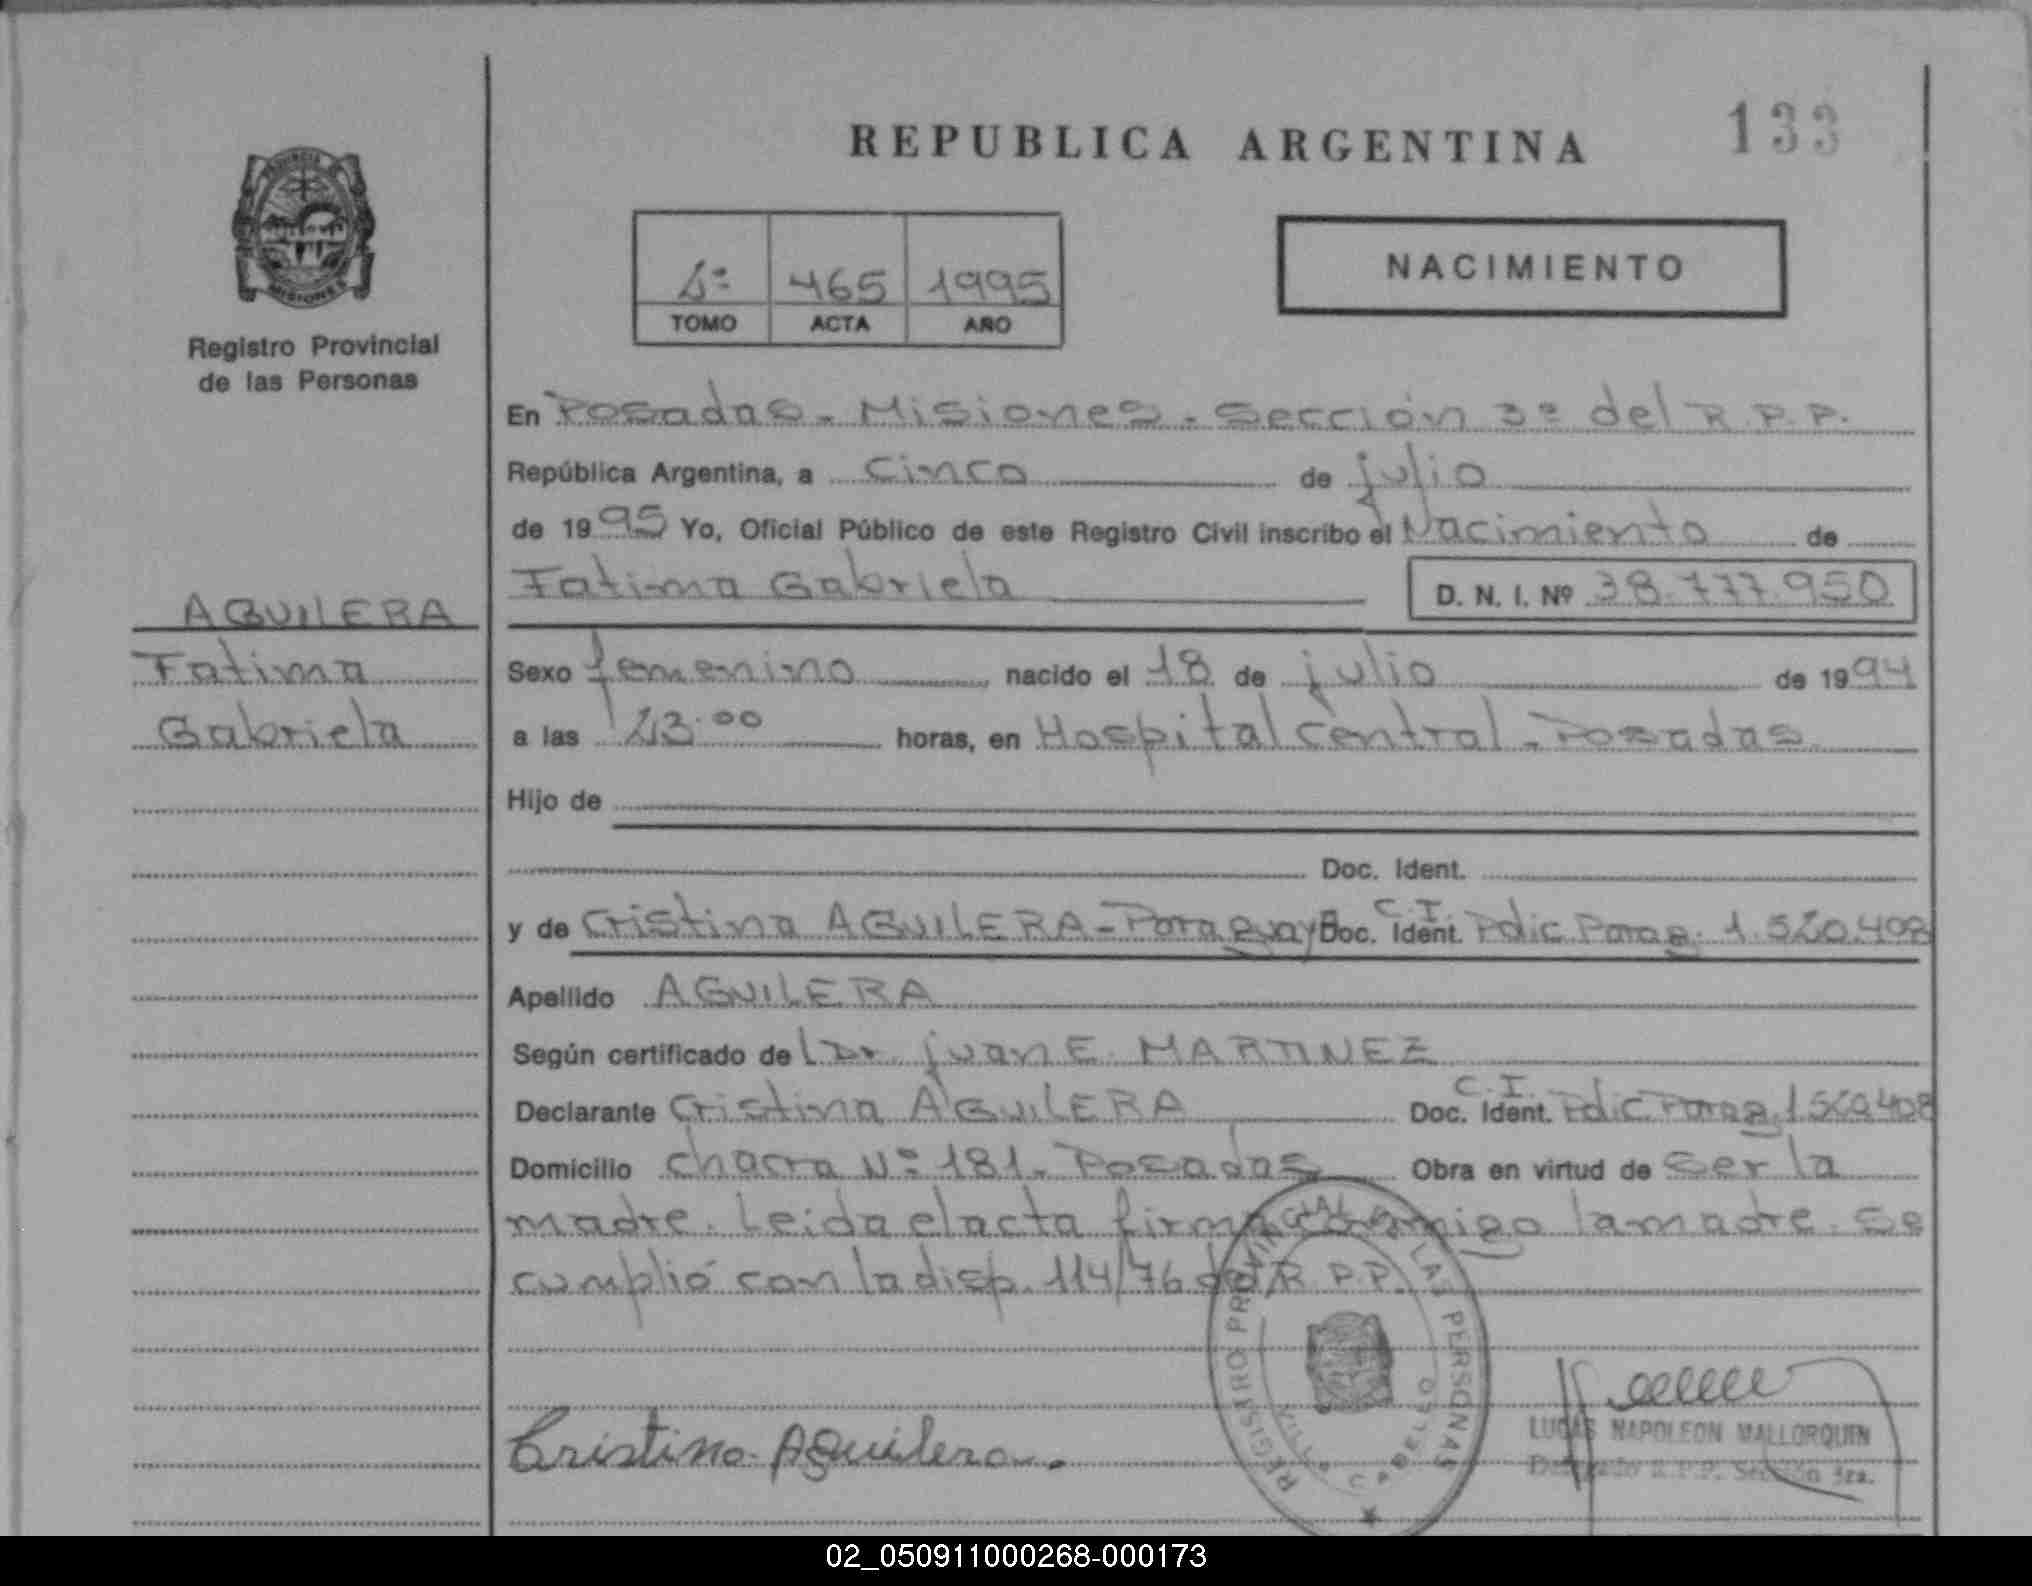 133
REPUBLICA ARGENTINA
PROVINCIA
MISIONES
Registro Provincial
de las Personas
465 1995
TOMO ACTA AÑO
NACIMIENTO
En Posadas - Misiones - Sección 3º del R.P.P.
República Argentina, a cinco de julio
de 1995 Yo, Oficial Público de este Registro Civil inscribo el Nacimiento de
Fatima Gabriela D. N. I. Nº 38.777.950
AGUILERA
Fatima
Gabriela
Sexo femenino nacido el 18 de julio de 1994
a las 23:00 horas, en Hospital Central - Posadas
Hijo de
Doc. Ident.
y de Cristina AGUILERA - Paraguay Doc. Ident. C.I. Polic Parag. 1.520.408
Apellido AGUILERA
Según certificado del Dr. Juan E. MARTINEZ
Declarante Cristina AGUILERA Doc. Ident. C.I. Polic Parag. 1.520.408
Domicilio chacra Nº 181 - Posadas Obra en virtud de ser la
madre. Leida el acta firma conmigo la madre. Se
cumplió con la disp. 114/76 del R.P.P.
REGISTRO PROVINCIAL DE LAS PERSONAS
CABELLO
Cristina Aguilera.
LUCAS NAPOLEON MALLORQUIN
Delegado R.P.P. Sección 3ra.
02_050911000268-000173